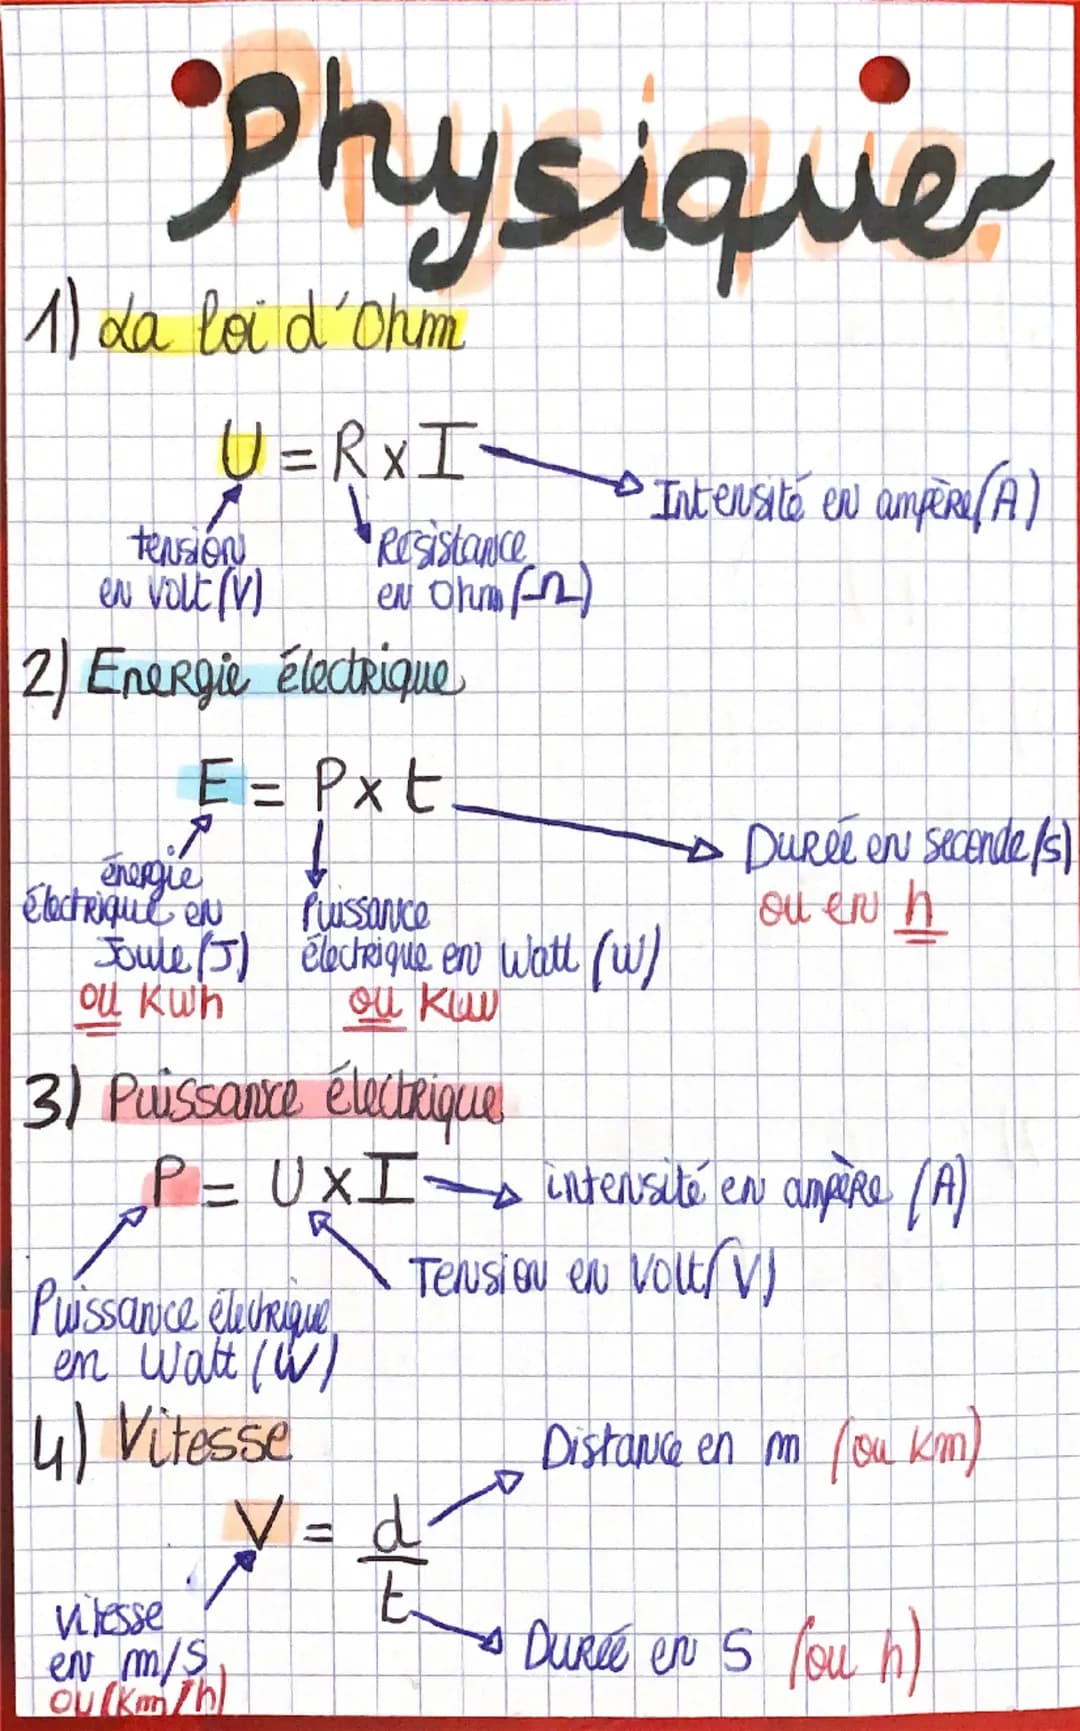 Physique
1) La loi d'Ohm
U = R x I
Intensité en ampère (A)
tension
en volt (V)
Resistance
en Ohm (Ω)
2) Energie électrique
E = P x t
Durée en seconde (s)
ou en h
énergie
électrique en
Joule (J)
ou Kwh
Puissance
électrique en Watt (W)
ou Kw
3) Puissance électrique
P = U x I
intensité en ampère (A)
Tension en Volt (V)
Puissance électrique
en Watt (W)
4) Vitesse
Distance en m (ou Km)
V = d
t
vitesse
en m/s
ou (Km/h)
Durée en S (ou h)